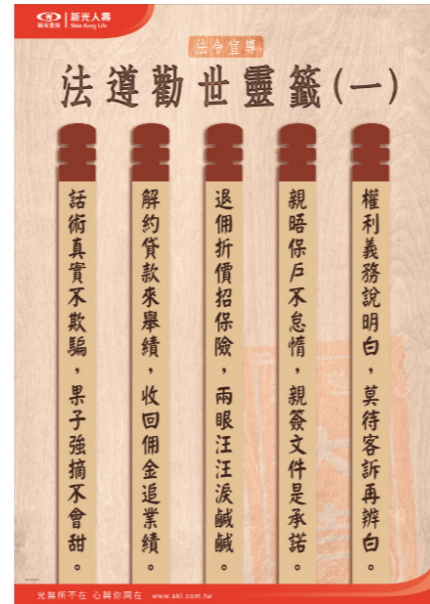 新光金控 新光人壽
Shin Kong Life
法令宣導
法遵勸世靈籤(一)
權利義務說明白，莫待客訴再辨白。
親晤保戶不怠惰，親簽文件是承諾。
退佣折價招保險，兩眼汪汪淚鹹鹹。
解約貸款來舉績，收回佣金追業績。
話術真實不欺騙，果子強摘不會甜。
光無所不在 心與你同在 www.skl.com.tw